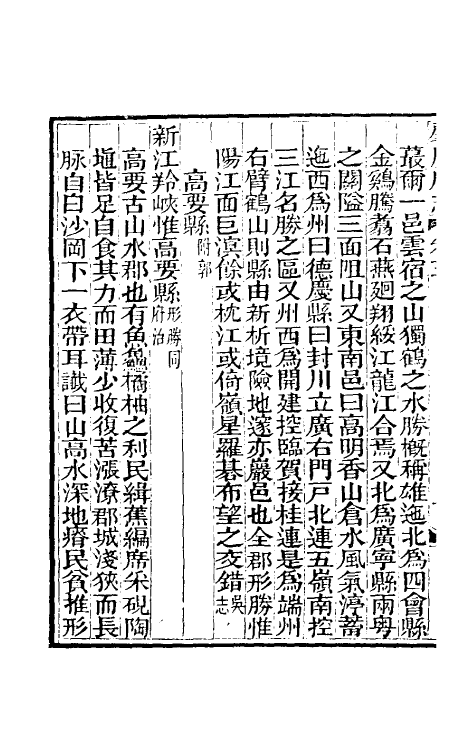 蕞爾一邑雲宿之山獨鶴之水勝慨稱雄迤北爲四會縣
金鷄騰翥石燕廻翔綏江龍江合焉又北爲廣寧縣兩粤
之關隘三面阻山又東南邑曰高明香山倉水風氣渟蓄
迤西爲州曰德慶縣曰封川立廣右門戸北連五嶺南控
三江名勝之區又州西爲開建控臨賀接桂連是爲端州
右臂鶴山則縣由新析境險地邃亦巖邑也全郡形勝惟
陽江面巨濵餘或枕江或倚嶺星羅碁布望之交錯吳志
高要縣附郭
新江羚峽惟高要縣形勝同府治
高要古山水郡也有魚鱻橘柚之利民緝蕉編席采硯陶
埴皆足自食其力而田薄少收復苦漲潦郡城淺狹而長
脉自白沙岡下一衣帶耳讖曰山高水深地瘠民貧推形